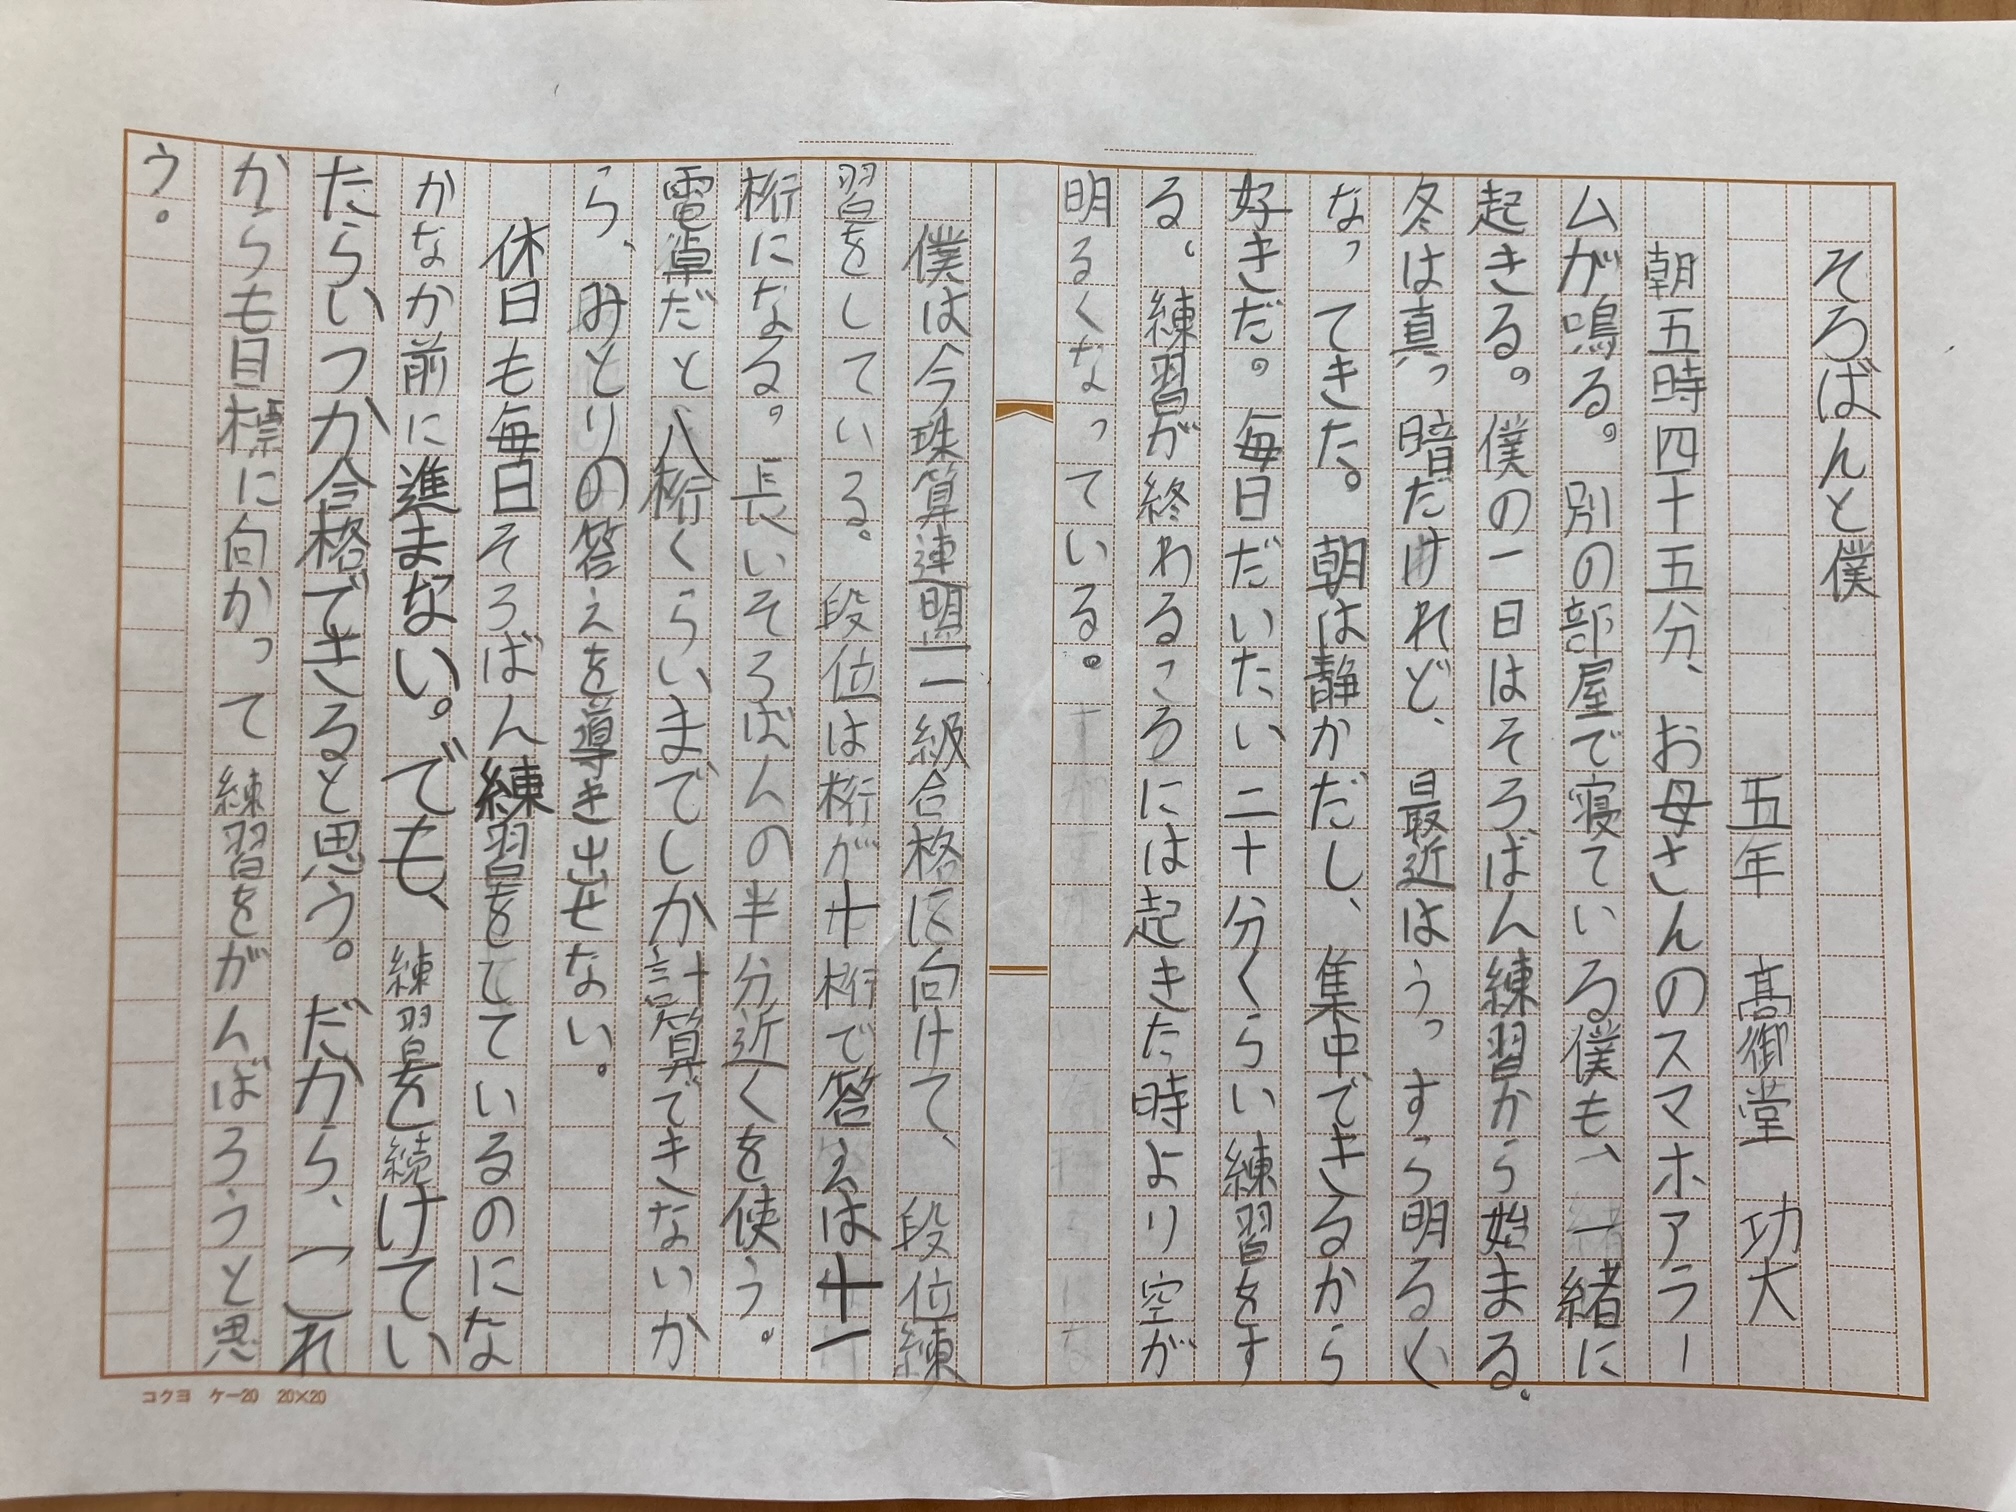 そろばんと僕
五年 髙御堂 功大
朝五時四十五分、お母さんのスマホアラー
ムが鳴る。別の部屋で寝ている僕も、一緒に
起きる。僕の一日はそろばん練習から始まる。
冬は真っ暗だけれど、最近はうっすら明るく
なってきた。朝は静かだし、集中できるから
好きだ。毎日だいたい二十分くらい練習をす
る。練習が終わるころには起きた時より空が
明るくなっている。
僕は今珠算連盟一級合格に向けて、段位練
習をしている。段位は桁が十桁で答えは十一
桁になる。長いそろばんの半分近くを使う。
電卓だと八桁くらいまでしか計算できないか
ら、みとりの答えを導き出せない。
休日も毎日そろばん練習をしているのにな
かなか前に進まない。でも、練習を続けてい
たらいつか合格できると思う。だから、これ
からも目標に向かって練習をがんばろうと思
う。
コクヨ ケー20 20×20